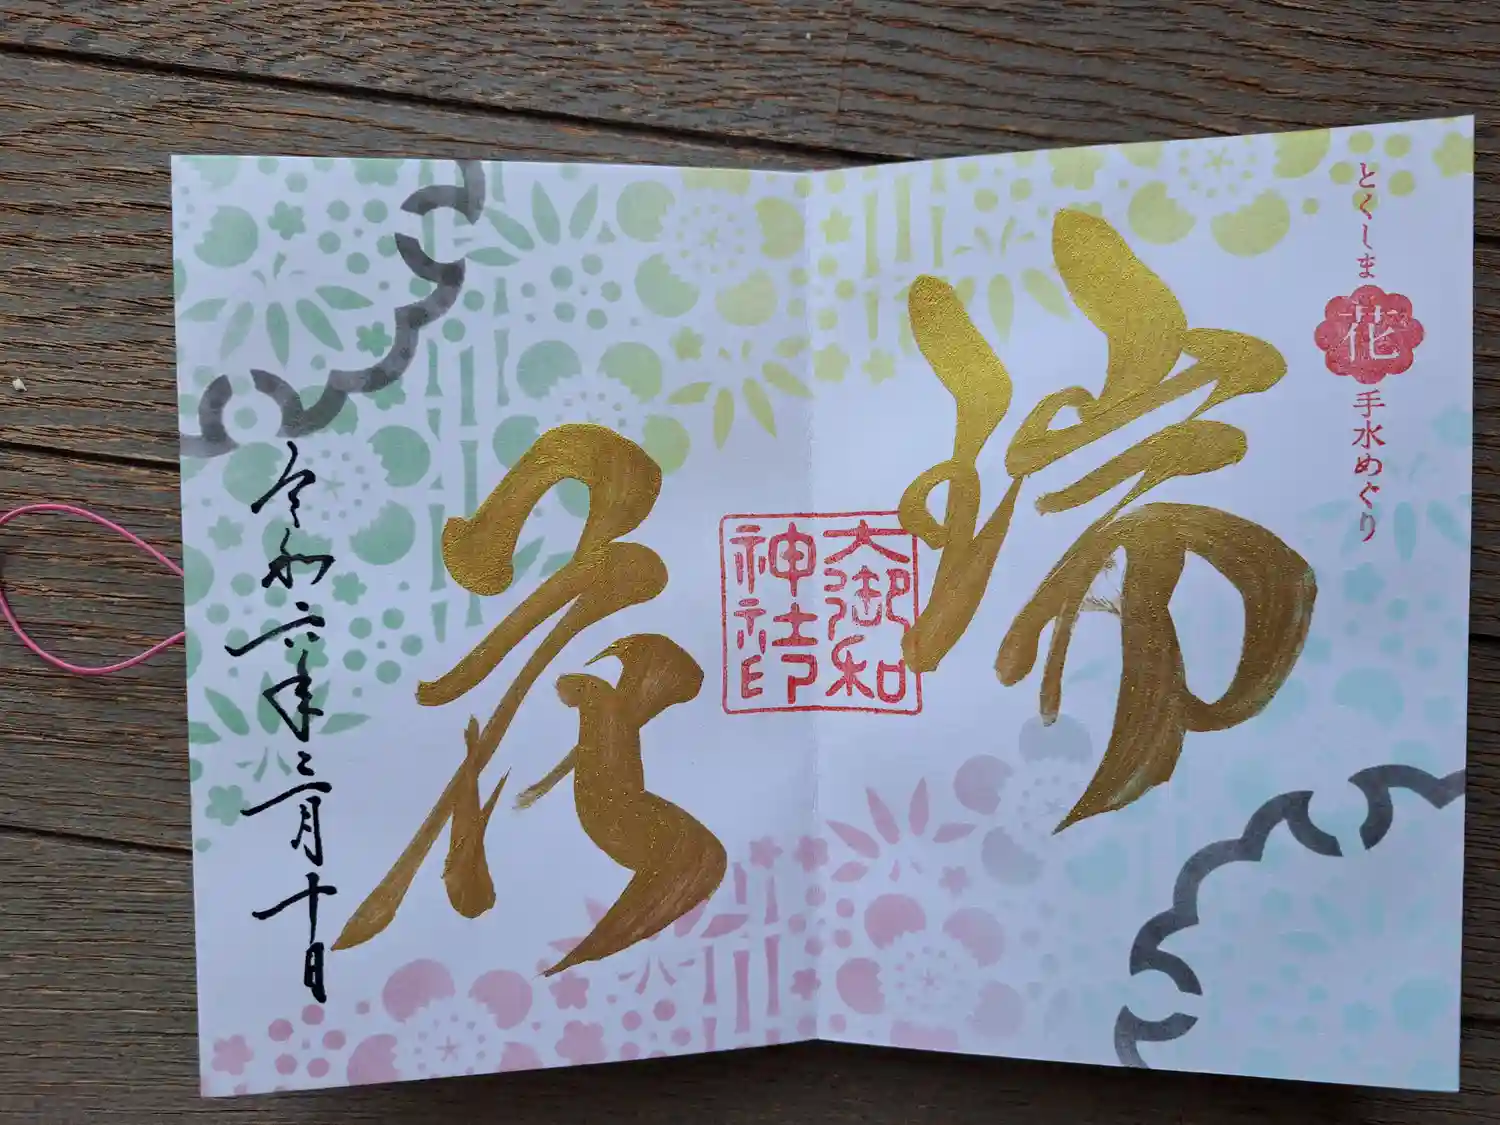 とくしま花手水めぐり
瑞花
大御和
神社印
令和六年三月十日